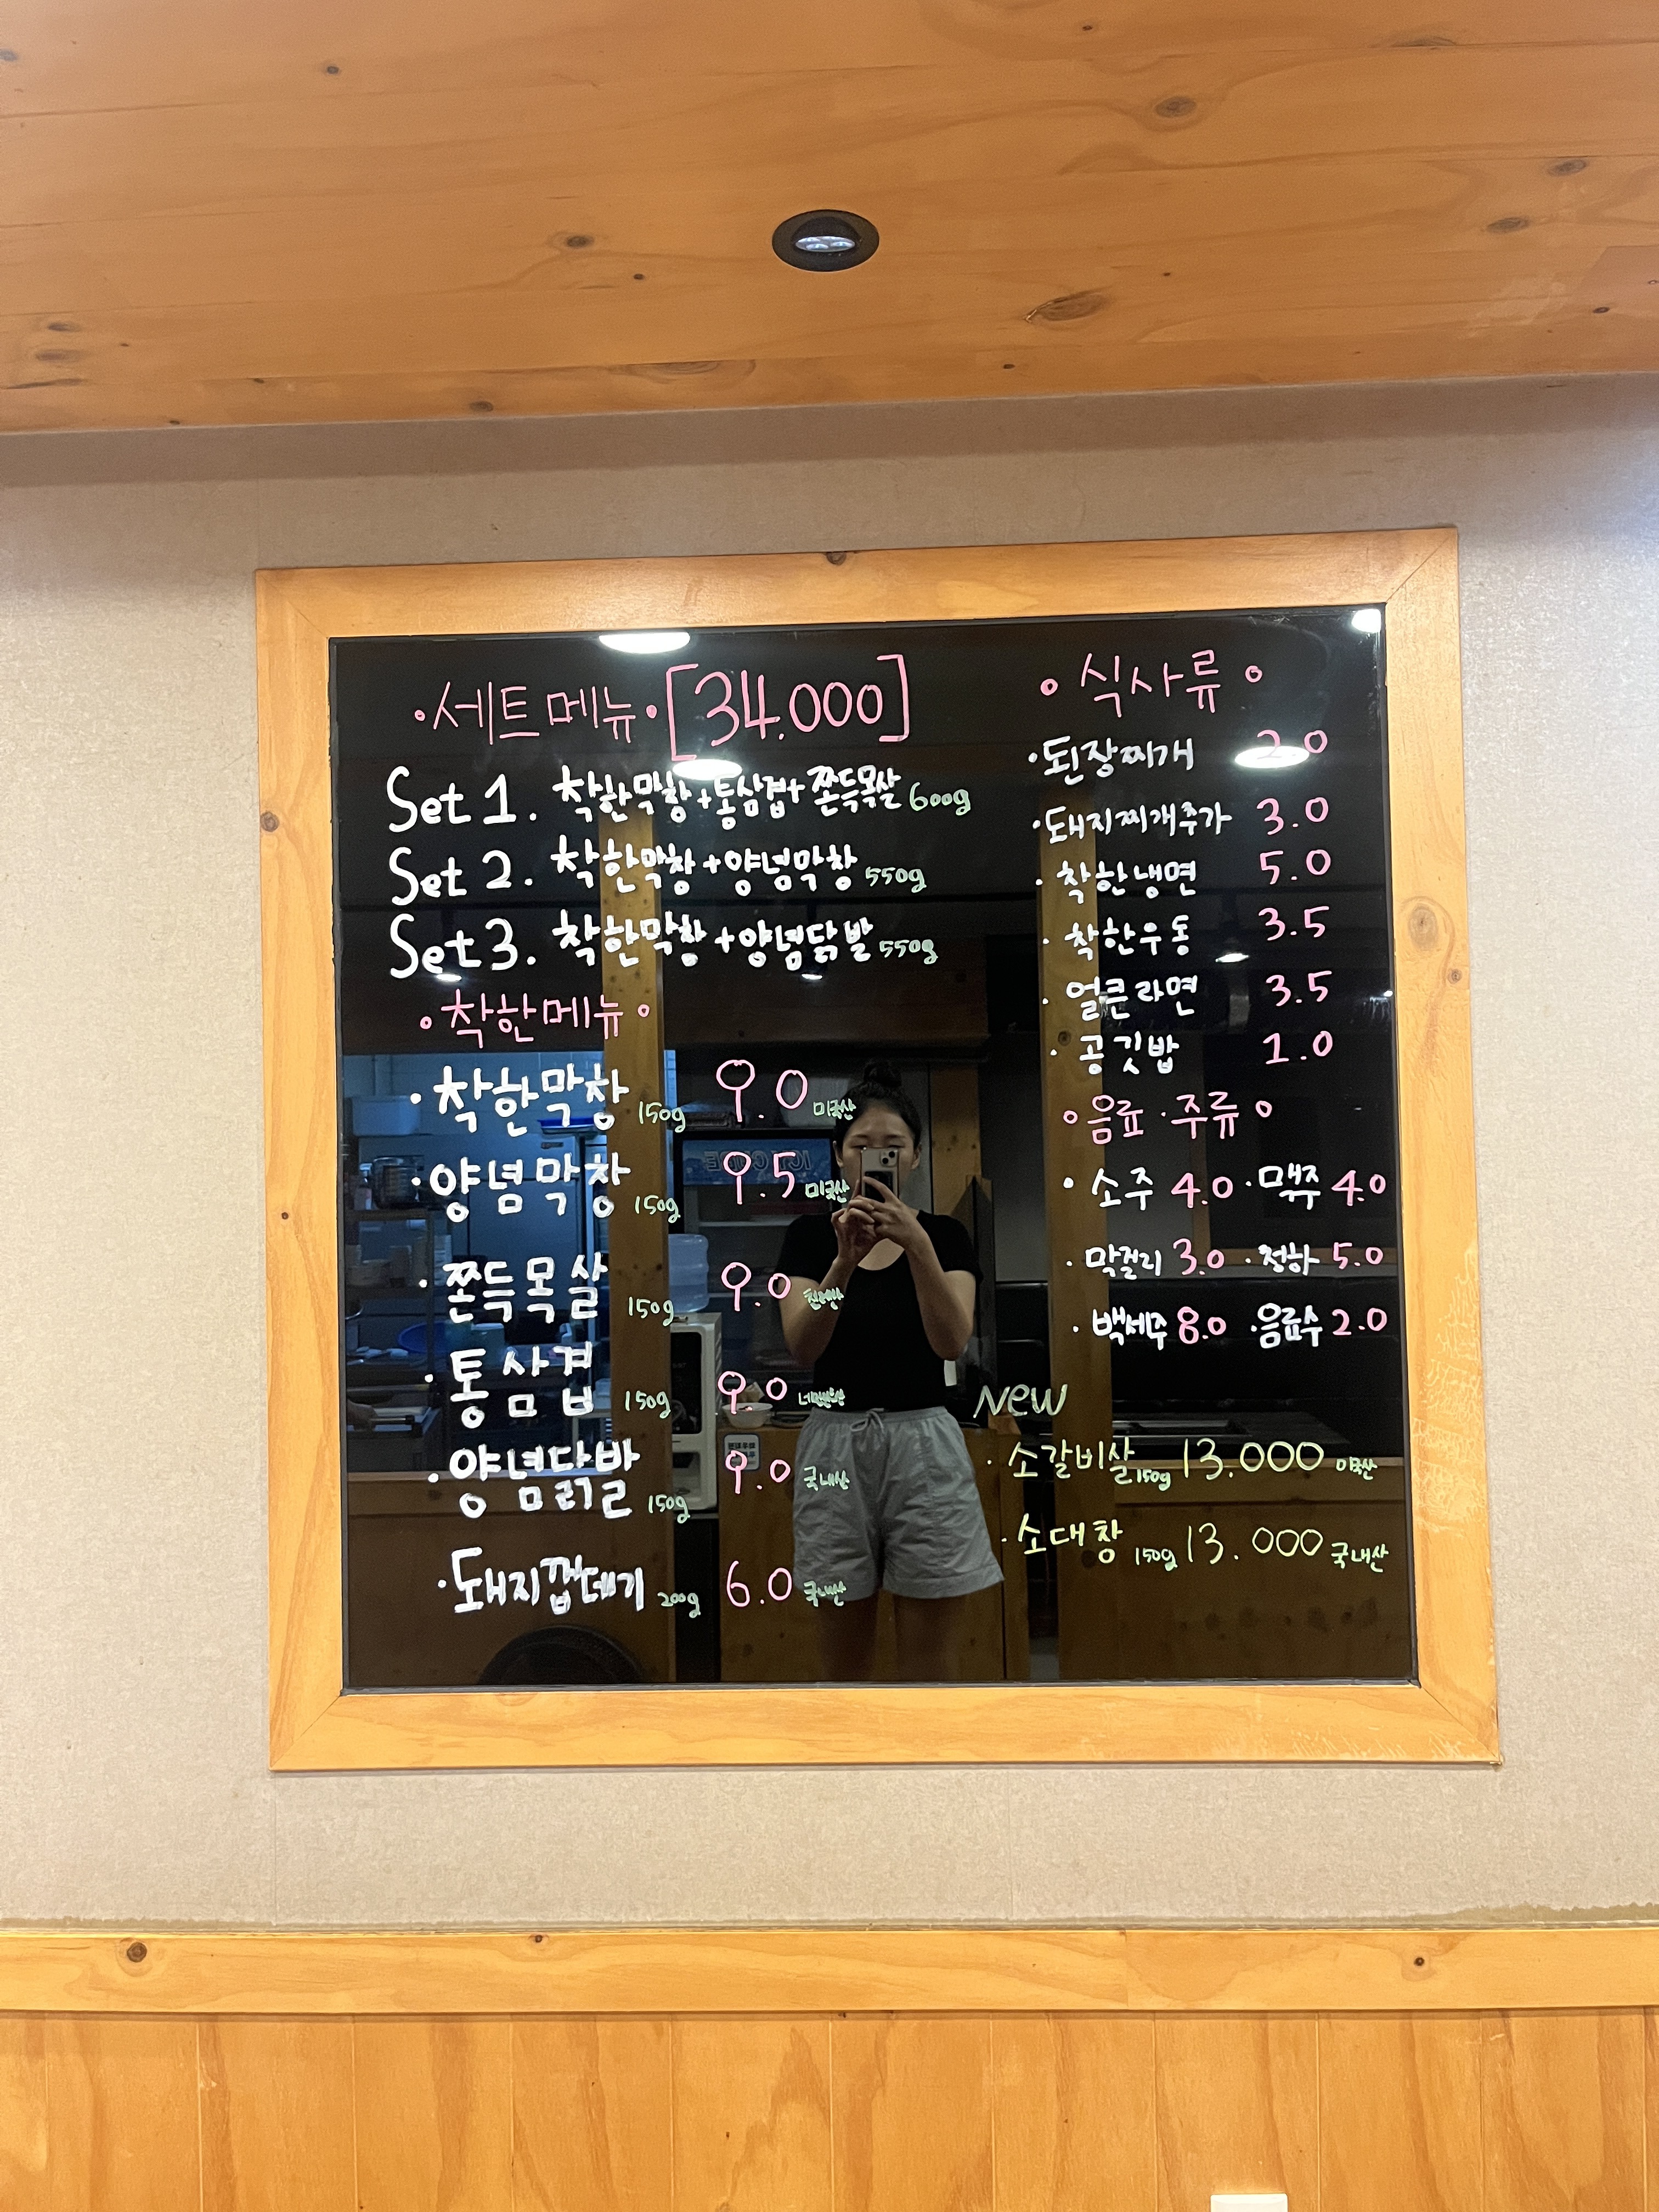 ·세트메뉴·[34.000]
Set 1. 착한막창+통삼겹+쫀득목살 600g
Set 2. 착한막창+양념막창 550g
Set 3. 착한막창+양념닭발 550g
∘착한메뉴∘
·착한막창 150g 9.0 미국산
·양념막창 150g 9.5 미국산
·쫀득목살 150g 9.0
·통삼겹 150g 9.0
·양념닭발 150g 9.0 국내산
·돼지껍데기 200g 6.0 국내산
∘식사류∘
·된장찌개 2.0
·돼지찌개추가 3.0
·착한냉면 5.0
·착한우동 3.5
·얼큰라면 3.5
·공깃밥 1.0
∘음료·주류∘
·소주 4.0 ·맥주 4.0
·막걸리 3.0 ·청하 5.0
·백세주 8.0 ·음료수 2.0
New
·소갈비살 150g 13.000 미국산
·소대창 150g 13.000 국내산